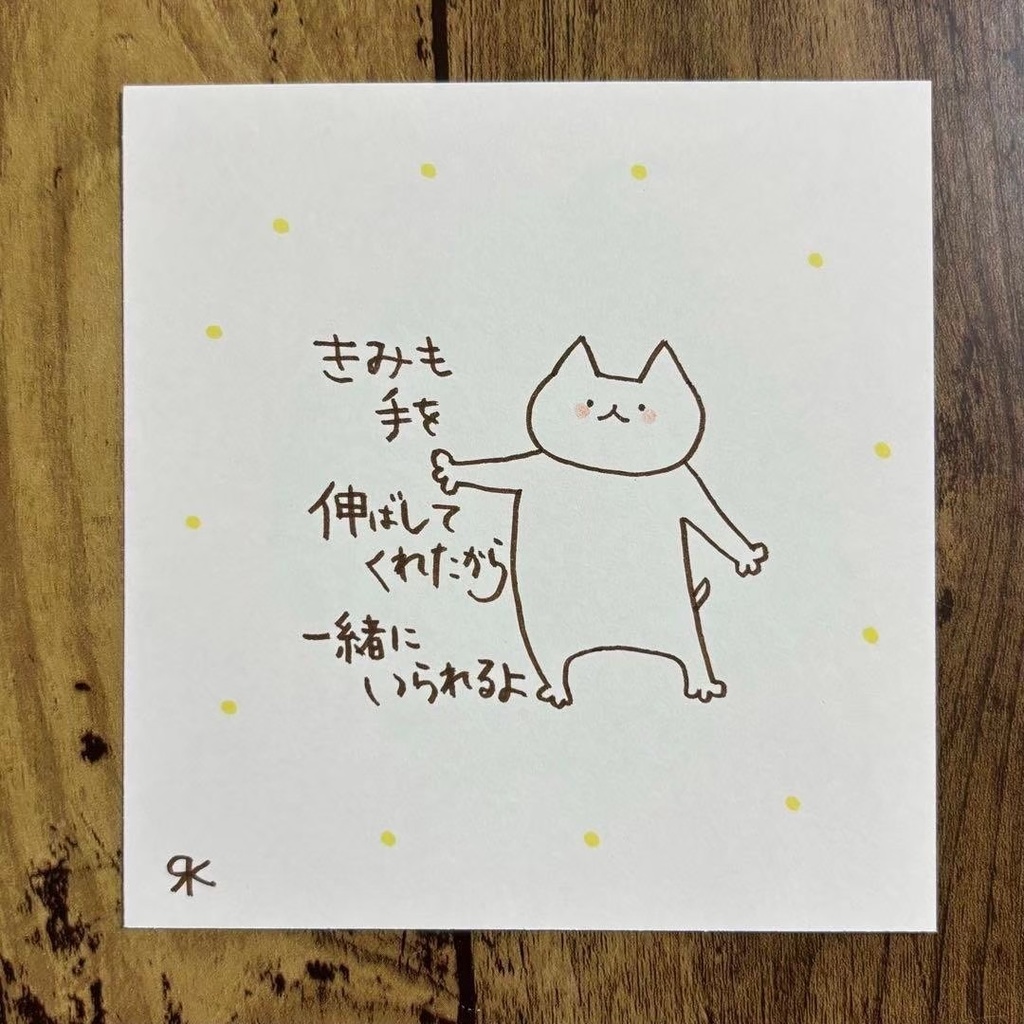 きみも
手を
伸ばして
くれたから
一緒に
いられるよ
RK